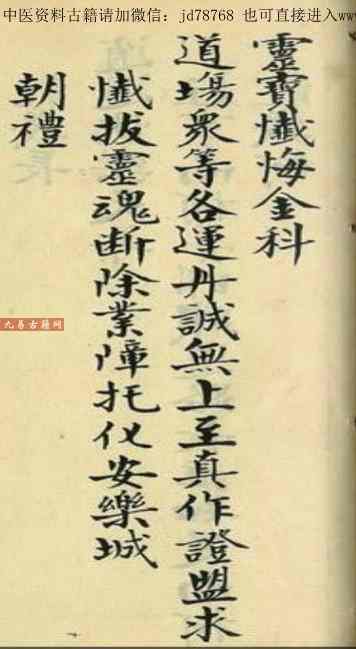 中医资料古籍请加微信：jd78768 也可直接进入www
靈寶懺悔金科
道場衆等各運丹誠無上至真作證盟求
懺拔靈魂断除業障托化安樂城
朝禮
九易古籍网